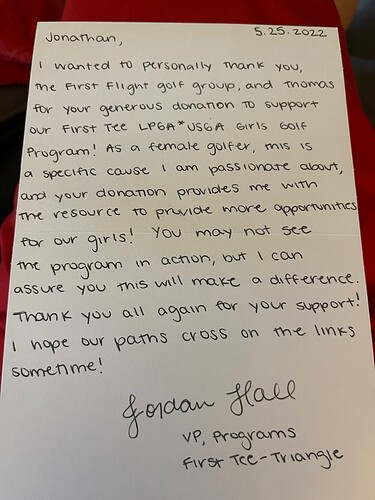 Jonathan,
5.25.2022
I wanted to personally thank you,
the First Flight golf group, and Thomas
for your generous donation to support
our First Tee LPGA*USGA Girls Golf
Program! As a female golfer, this is
a specific cause I am passionate about,
and your donation provides me with
the resource to provide more opportunities
for our girls! You may not see
the program in action, but I can
assure you this will make a difference.
Thank you all again for your support!
I hope our paths cross on the links
sometime!
Jordan Hall
VP, Programs
First Tee-Triangle